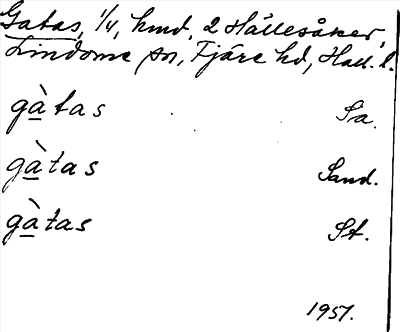 Gatas, 1/4, hmd, 2 Hällesåker,
Lindome sn, Fjäre hd, Hall. l.
gàtas Sa.
gàtas Sand.
gàtas St.
1957.